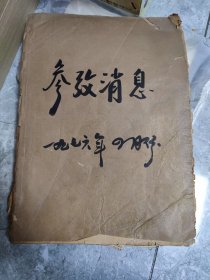 参考消息
一九七六年4月